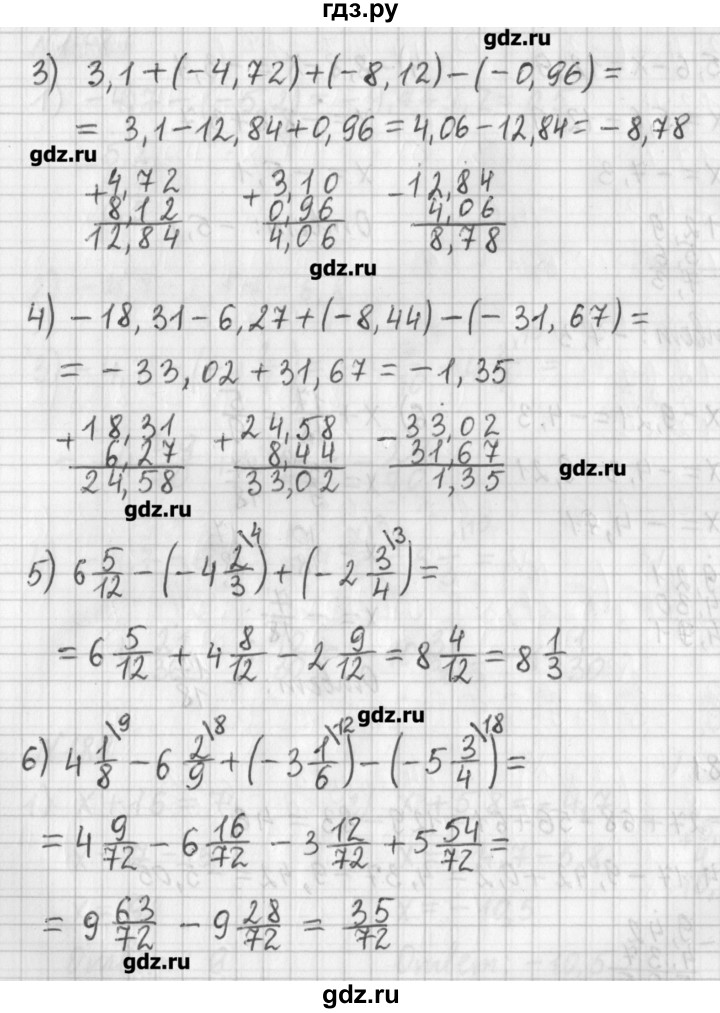 гдз.ру
gdz.ru
3) 3,1+(-4,72)+(-8,12)-(-0,96)=
= 3,1-12,84+0,96=4,06-12,84=-8,78
gdz.ru
+4,72 +3,10 -12,84
8,12 0,96 4,06
12,84 4,06 8,78
gdz.ru
4) -18,31-6,27+(-8,44)-(-31,67)=
= -33,02+31,67=-1,35
+18,31 +24,58 -33,02
6,27 8,44 31,67
24,58 33,02 1,35
gdz.ru
gdz.ru
5) 6 5/12 - (-4 2/3\4) + (-2 3/4\3) =
= 6 5/12 + 4 8/12 - 2 9/12 = 8 4/12 = 8 1/3
gdz.ru
6) 4 1/8\9 - 6 2/9\8 + (-3 1/6\12) - (-5 3/4\18) =
= 4 9/72 - 6 16/72 - 3 12/72 + 5 54/72 =
= 9 63/72 - 9 28/72 = 35/72
gdz.ru
gdz.ru